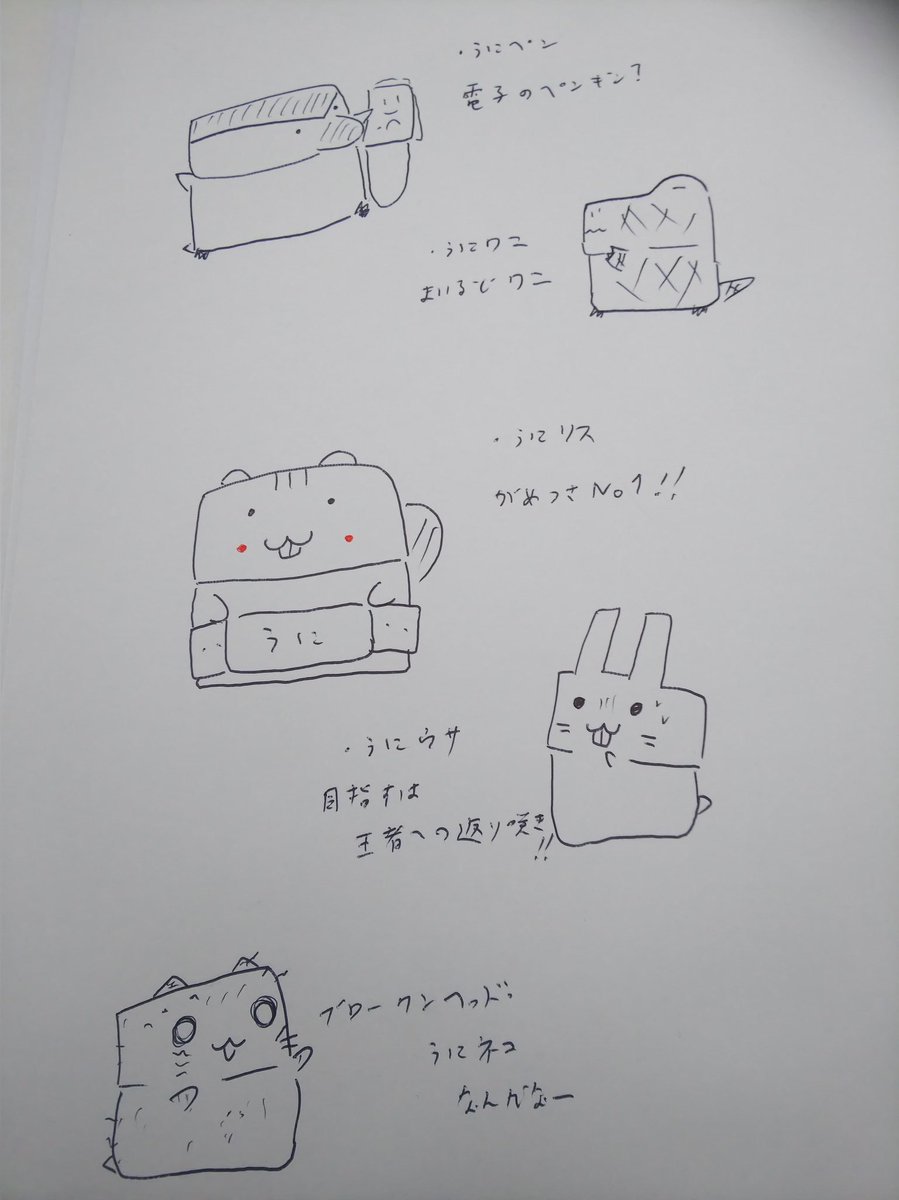 ・うにペン
電子のペンギン?
・うにワニ
まいるどワニ
・うにリス
がめつさNo1!!
うに
・うにウサ
目指すは
王者への返り咲き!!
ブロークンヘッド:
うにネコ
なんだなー